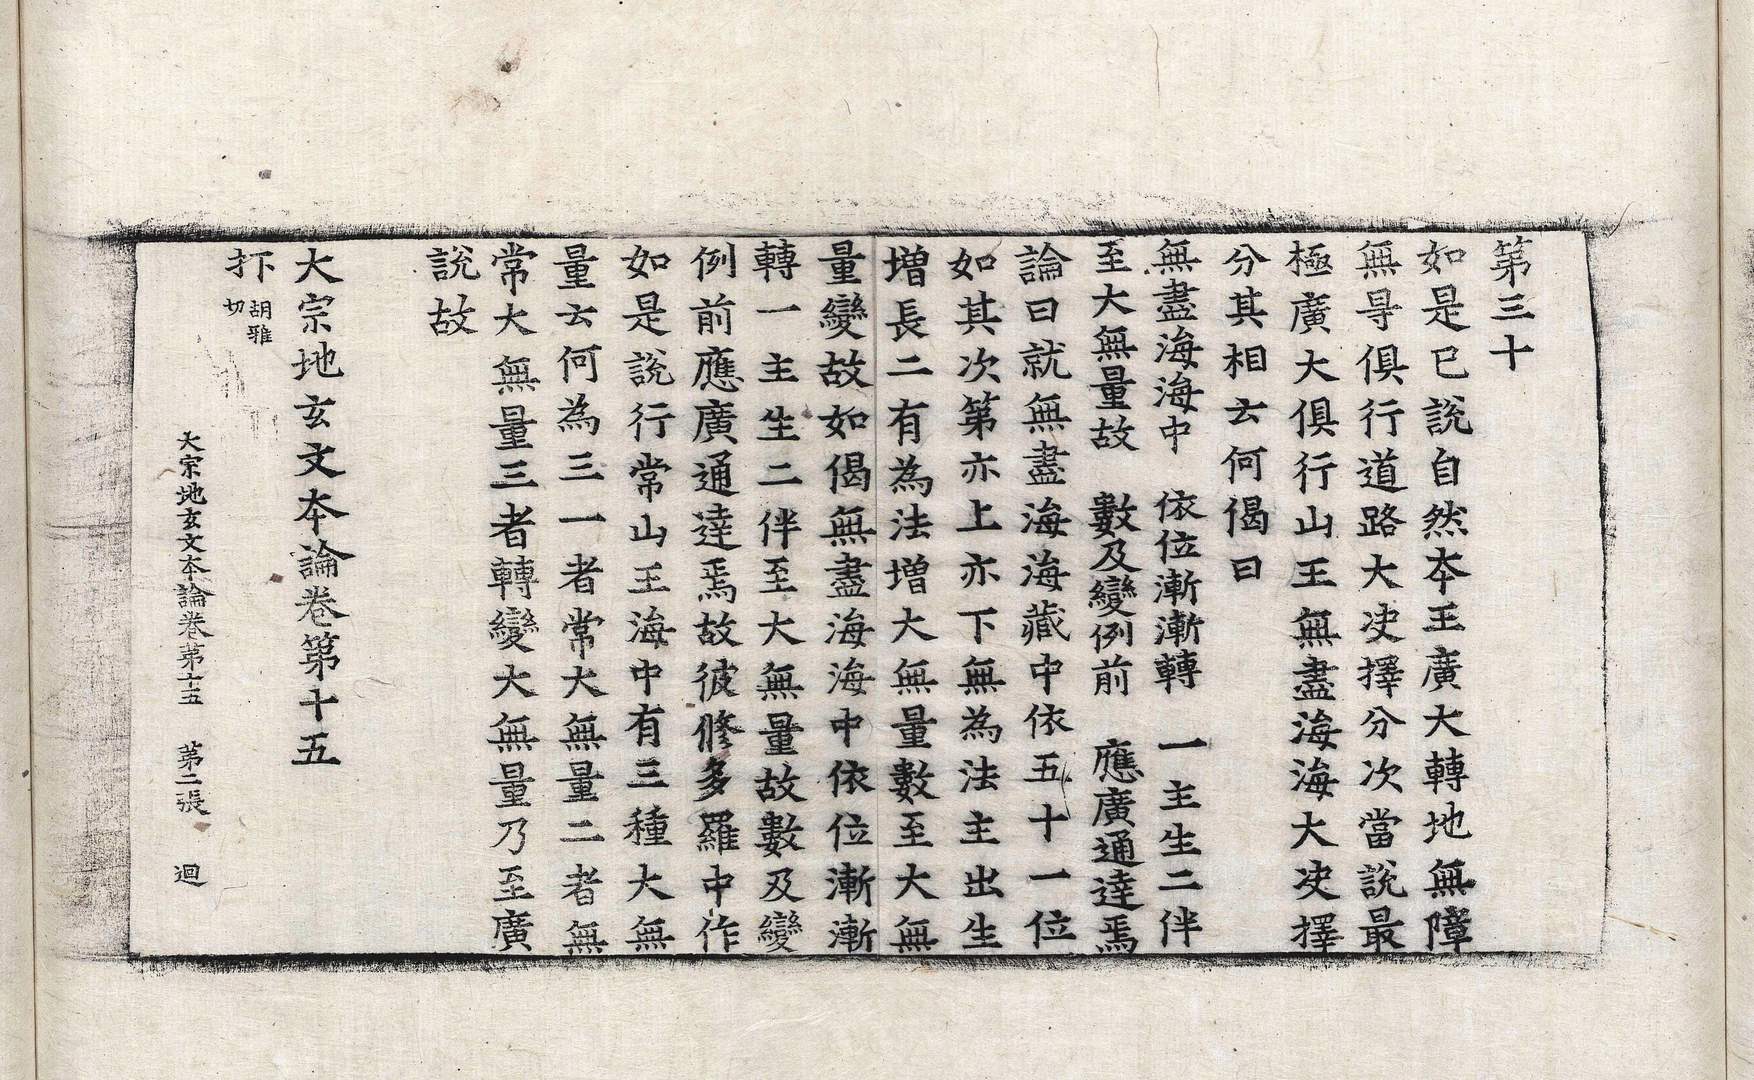 第三十
如是已說自然夲王廣大轉地無障
無㝵俱行道路大决擇分次當說最
極廣大俱行山王無盡海海大决擇
分其相云何偈曰
無盡海海中　依位漸漸轉　一主生二伴
至大無量故　數及變例前　應廣通達焉
論曰就無盡海海藏中依五十一位
如其次第亦上亦下無為法主出生
増長二有為法増大無量數至大無
量變故如偈無盡海海中依位漸漸
轉一主生二伴至大無量故數及變
例前應廣通達焉故彼修多羅中作
如是說行常山王海中有三種大無
量云何為三一者常大無量二者無
常大無量三者轉變大無量乃至廣
說故
大宗地玄文夲論卷第十五
㧎胡雅切
大宗地玄文夲論卷苐十五　苐二張　迴